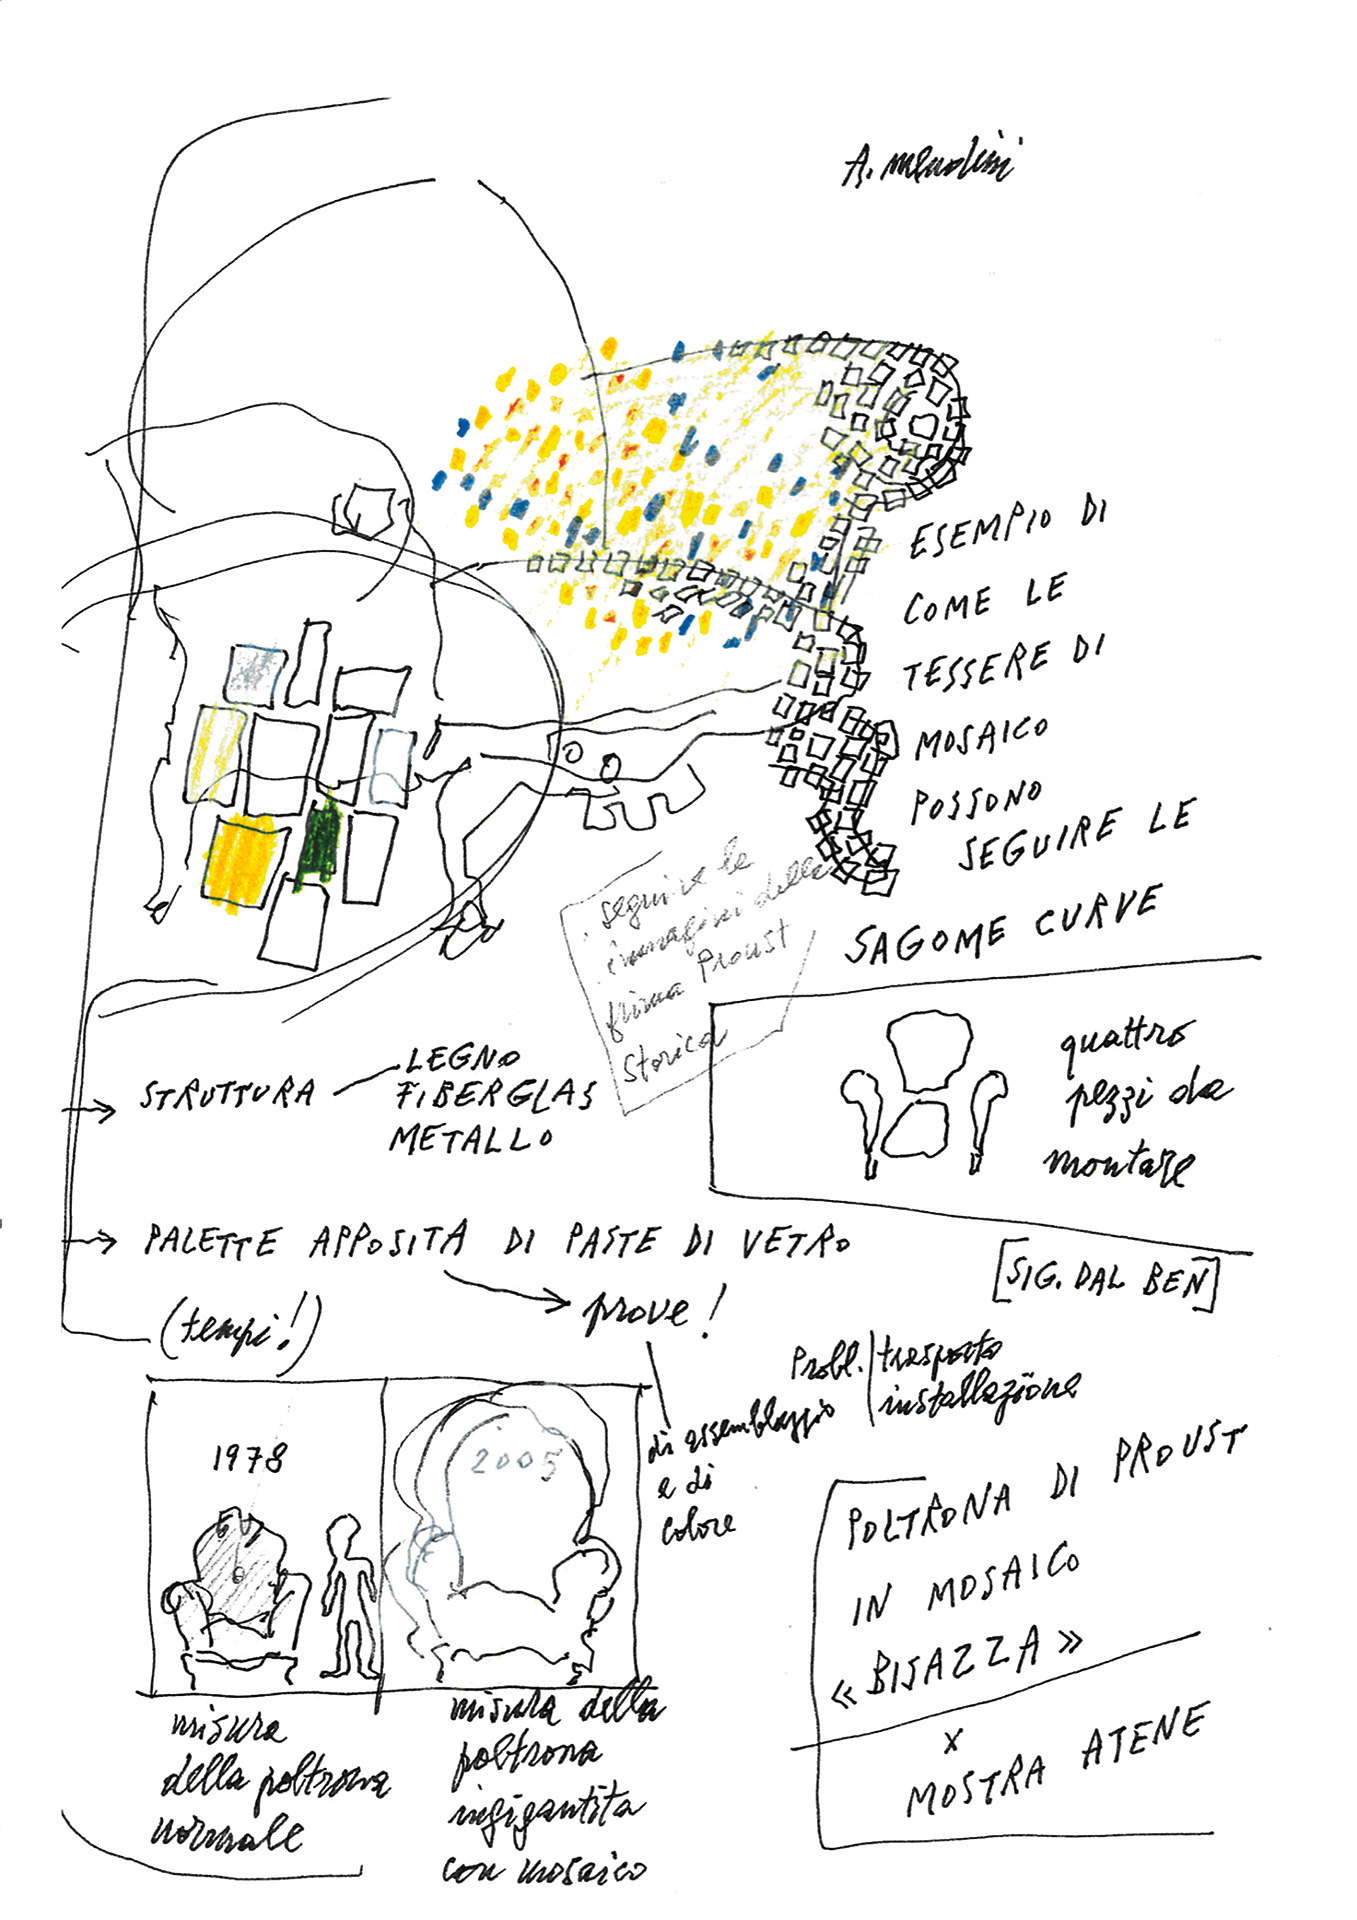 A. Mendini
ESEMPIO DI
COME LE
TESSERE DI
MOSAICO
POSSONO
SEGUIRE LE
SAGOME CURVE
seguire le
immagini della
prima Proust
Storica
quattro
pezzi da
montare
STRUTTURA
LEGNO
FIBERGLAS
METALLO
PALETTE APPOSITA DI PASTE DI VETRO
(tempi!)
prove!
[SIG. DAL BEN]
Probl. trasporto
installazione
di assemblaggio
e di
colore
1978
2005
misura
della poltrona
normale
misura della
poltrona
ingigantita
con mosaico
POLTRONA DI PROUST
IN MOSAICO
« BISAZZA »
x
MOSTRA ATENE